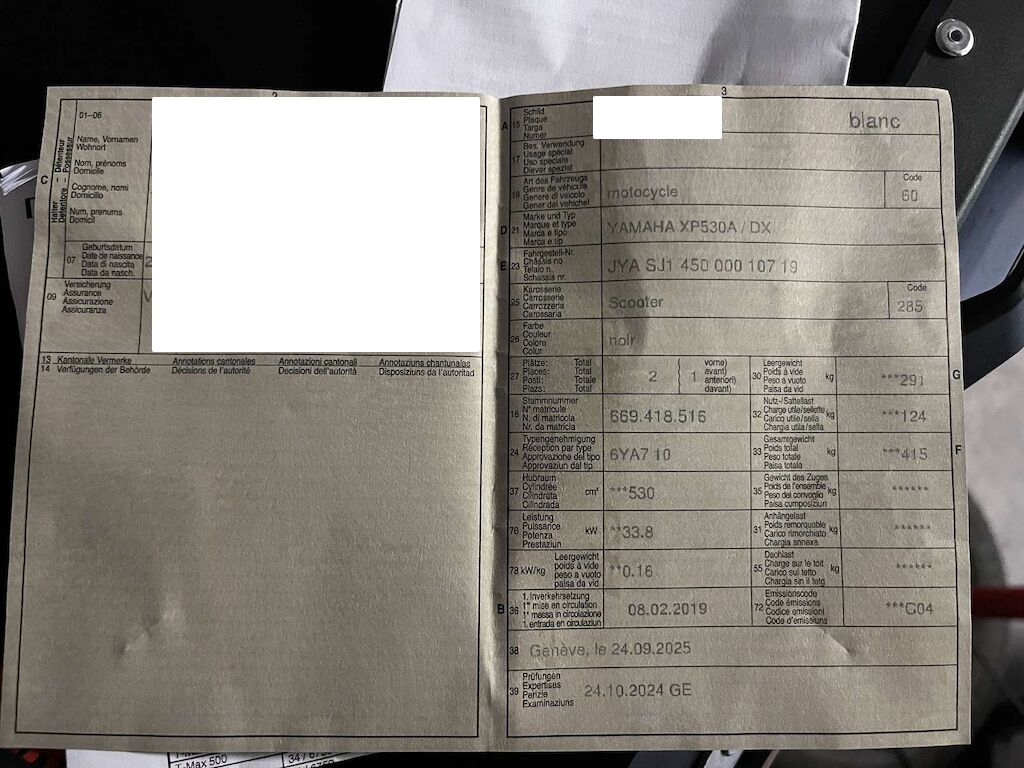 2
01–06
Name, Vornamen
Wohnort
Nom, prénoms
Domicile
Cognome, nomi
Domicilio
Num, prenums
Domicil
C
Halter – Détenteur
Detentore – Possessur
07
Geburtsdatum
Date de naissance
Data di nascita
Data da nasch.
2
09
Versicherung
Assurance
Assicurazione
Assicuranza
V
13 Kantonale Vermerke Annotations cantonales Annotazioni cantonali Annotaziuns chantunalas
14 Verfügungen der Behörde Décisions de l'autorité Decisioni dell'autorità Disposiziuns da l'autoritad
3
A 15
Schild
Plaque
Targa
Numer
blanc
17
Bes. Verwendung
Usage spécial
Uso speciale
Diever spezial
19
Art des Fahrzeugs
Genre de véhicule
Genere di veicolo
Gener dal vehichel
motocycle
Code
60
D 21
Marke und Typ
Marque et type
Marca e tipo
Marca e tip
YAMAHA XP530A / DX
E 23
Fahrgestell-Nr.
Châssis no
Telaio n.
Schassis nr.
JYA SJ1 450 000 107 19
25
Karosserie
Carrosserie
Carrozzeria
Carossaria
Scooter
Code
285
26
Farbe
Couleur
Colore
Colur
noir
27
Plätze: Total
Places: Total
Posti: Totale
Plazs: Total
2
( 1
vorne)
avant)
anteriori)
davant)
30
Leergewicht
Poids à vide
Peso a vuoto
Paisa da vid
kg
***291
G
18
Stammnummer
N° matricule
N. di matricola
Nr. da matricla
669.418.516
32
Nutz-/Sattellast
Charge utile/sellette
Carico utile/sella
Chargia utila/sella
kg
***124
24
Typengenehmigung
Réception par type
Approvazione del tipo
Approvaziun dal tip
6YA7 10
33
Gesamtgewicht
Poids total
Peso totale
Paisa totala
kg
***415
F
37
Hubraum
Cylindrée
Cilindrata
Cilindrada
cm³
***530
35
Gewicht des Zuges
Poids de l'ensemble
Peso del convoglio
Paisa cumposiziun
kg
******
76
Leistung
Puissance
Potenza
Prestaziun
kW
**33.8
31
Anhängelast
Poids remorquable
Carico rimorchiato
Chargia annexa
kg
******
78 kW/kg
Leergewicht
poids à vide
peso a vuoto
paisa da vid
**0.16
55
Dachlast
Charge sur le toit
Carico sul tetto
Chargia sin il tetg
kg
******
B 36
1. Inverkehrsetzung
1re mise en circulation
1a messa in circolazione
1. entrada en circulaziun
08.02.2019
72
Emissionscode
Code émissions
Codice emissioni
Code d'emissiuns
***G04
38 Genève, le 24.09.2025
39
Prüfungen
Expertises
Perizie
Examinaziuns
24.10.2024 GE
T-Max 500